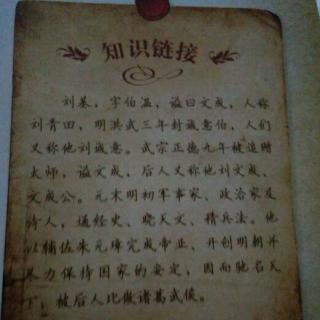 知识链接
刘基，字伯温，谥曰文成，人称
刘青田，明洪武三年封诚意伯，人们
又称他刘诚意。武宗正德九年被追赠
太师，谥文成，后人又称他刘文成、
文成公。元末明初军事家、政治家及
诗人，通经史、晓天文、精兵法。他
以辅佐朱元璋完成帝业、开创明朝并
尽力保持国家的安定，因而驰名天
下，被后人比做诸葛武侯。